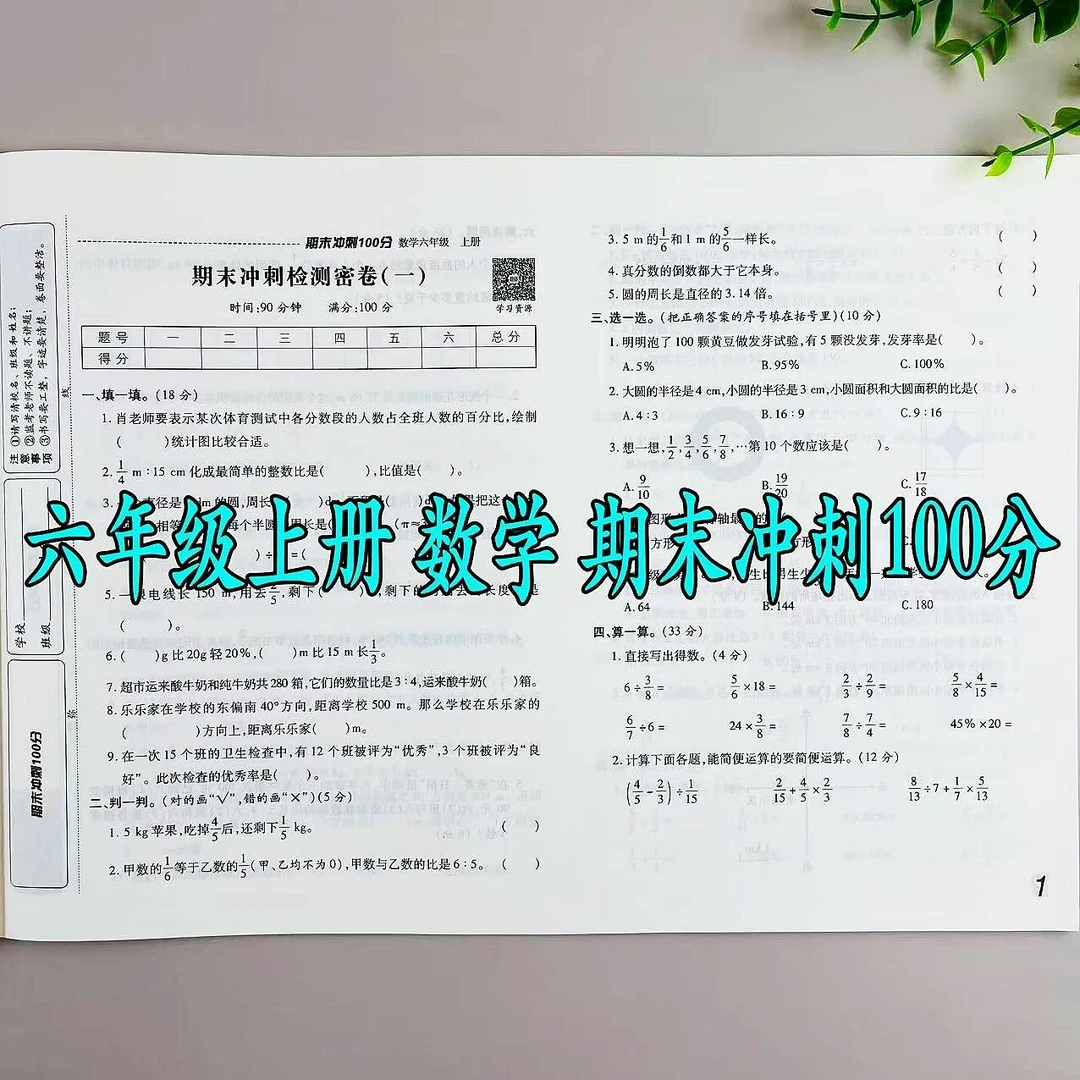 六年级上册 数学 期末冲刺100分
期末冲刺100分 数学六年级 上册
期末冲刺检测密卷(一)
时间:90分钟 满分:100分
学习资源
题号 一 二 三 四 五 六 总分
得分
注意事项
①请写清校名、班级和姓名;
②监考老师不读题、不讲题;
③书写要工整,字迹要清楚,卷面要整洁。
学校
班级
线
期末冲刺100分
一、填一填。(18分)
1.肖老师要表示某次体育测试中各分数段的人数占全班人数的百分比,绘制
( )统计图比较合适。
2. 1/4 m∶15 cm化成最简单的整数比是( ),比值是( )。
3.
5. 150 m,用去 /5,剩下( )
( )。
6.( )g比20g轻20%,( )m比15 m长1/3。
7.超市运来酸牛奶和纯牛奶共280箱,它们的数量比是3∶4,运来酸牛奶( )箱。
8.乐乐家在学校的东偏南40°方向,距离学校500 m。那么学校在乐乐家的
( )方向上,距离乐乐家( )m。
9.在一次15个班的卫生检查中,有12个班被评为“优秀”,3个班被评为“良
好”。此次检查的优秀率是( )。
二、判一判。(对的画“√”,错的画“×”)(5分)
1. 5 kg苹果,吃掉4/5后,还剩下1/5 kg。 ( )
2.甲数的1/6等于乙数的1/5(甲、乙均不为0),甲数与乙数的比是6∶5。 ( )
3. 5 m的1/6和1 m的5/6一样长。 ( )
4.真分数的倒数都大于它本身。 ( )
5.圆的周长是直径的3.14倍。 ( )
三、选一选。(把正确答案的序号填在括号里)(10分)
1.明明泡了100颗黄豆做发芽试验,有5颗没发芽,发芽率是( )。
A.5% B.95% C.100%
2.大圆的半径是4 cm,小圆的半径是3 cm,小圆面积和大圆面积的比是( )。
A.4∶3 B.16∶9 C.9∶16
3.想一想,1/2,3/4,5/6,7/8,…第10个数应该是( )。
A.9/10 B.19/20 C.17/18
A.64 B.144 C.180
四、算一算。(33分)
1.直接写出得数。(4分)
6÷3/8= 5/6×18= 2/3÷2/9= 5/8×4/15=
6/7÷6= 24×3/8= 7/8÷7/4= 45%×20=
2.计算下面各题,能简便运算的要简便运算。(12分)
(4/5-2/3)÷1/15 2/15+4/5×2/3 8/13÷7+1/7×5/13
1